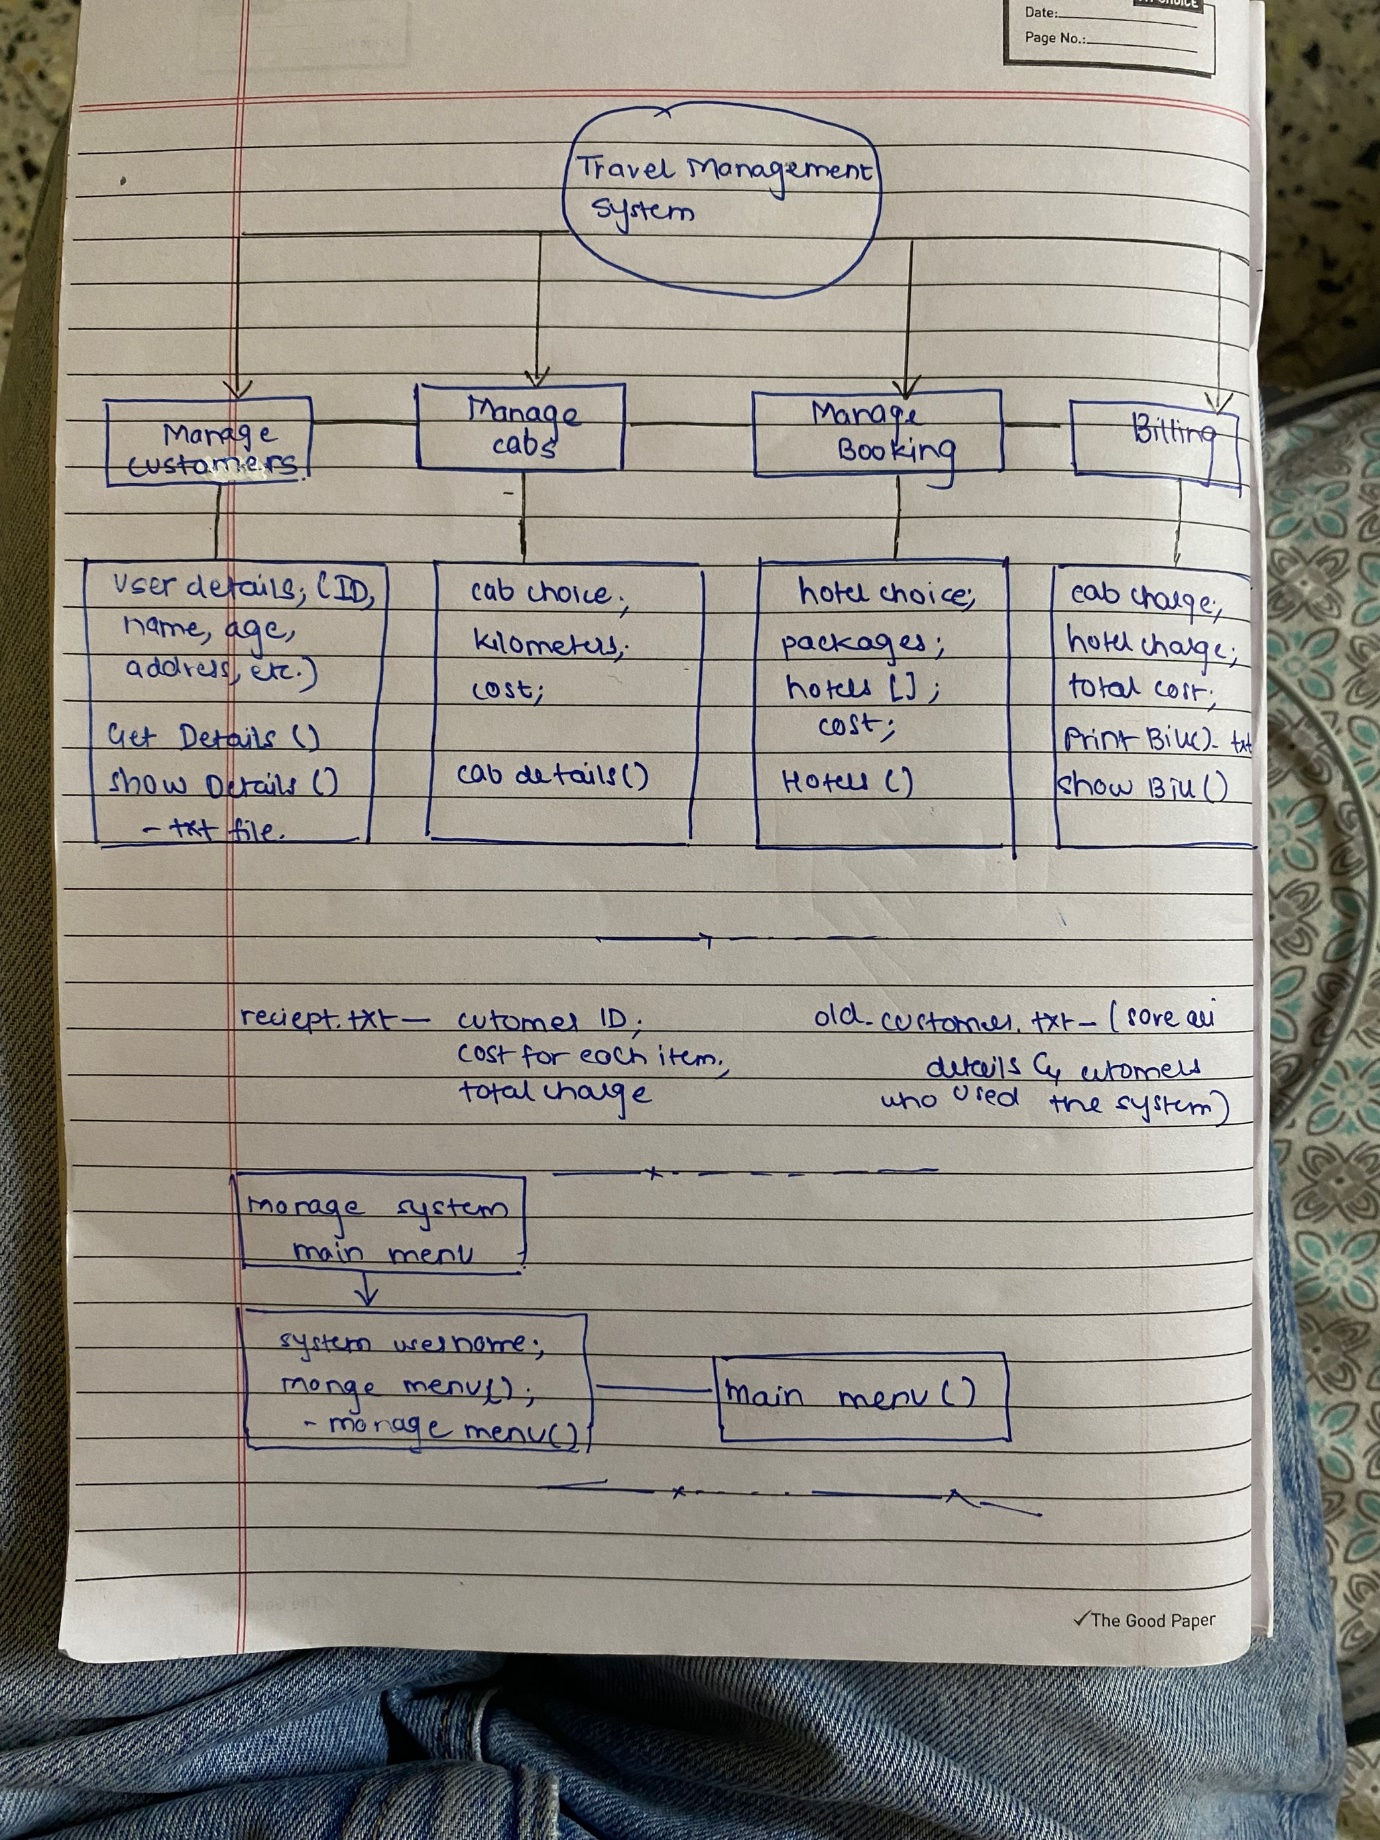 Date:
Page No.:
Travel Management
System
Manage
customers
Manage
cabs
Manage
Booking
Billing
User details; (ID,
name, age,
address, etc.)
Get Details ()
Show Details ()
- txt file.
cab choice;
kilometers;
cost;
cab details()
hotel choice;
packages;
hotels [];
cost;
Hotels ()
cab charge;
hotel charge;
total cost;
Print Bill()- txt
Show Bill ()
reciept.txt — cutomer ID;
cost for each item;
total charge
old-customer.txt - (save all
details of cutomers
who used the system)
manage system
main menu
system username;
mange menu();
- manage menu()
main menu ()
✓The Good Paper